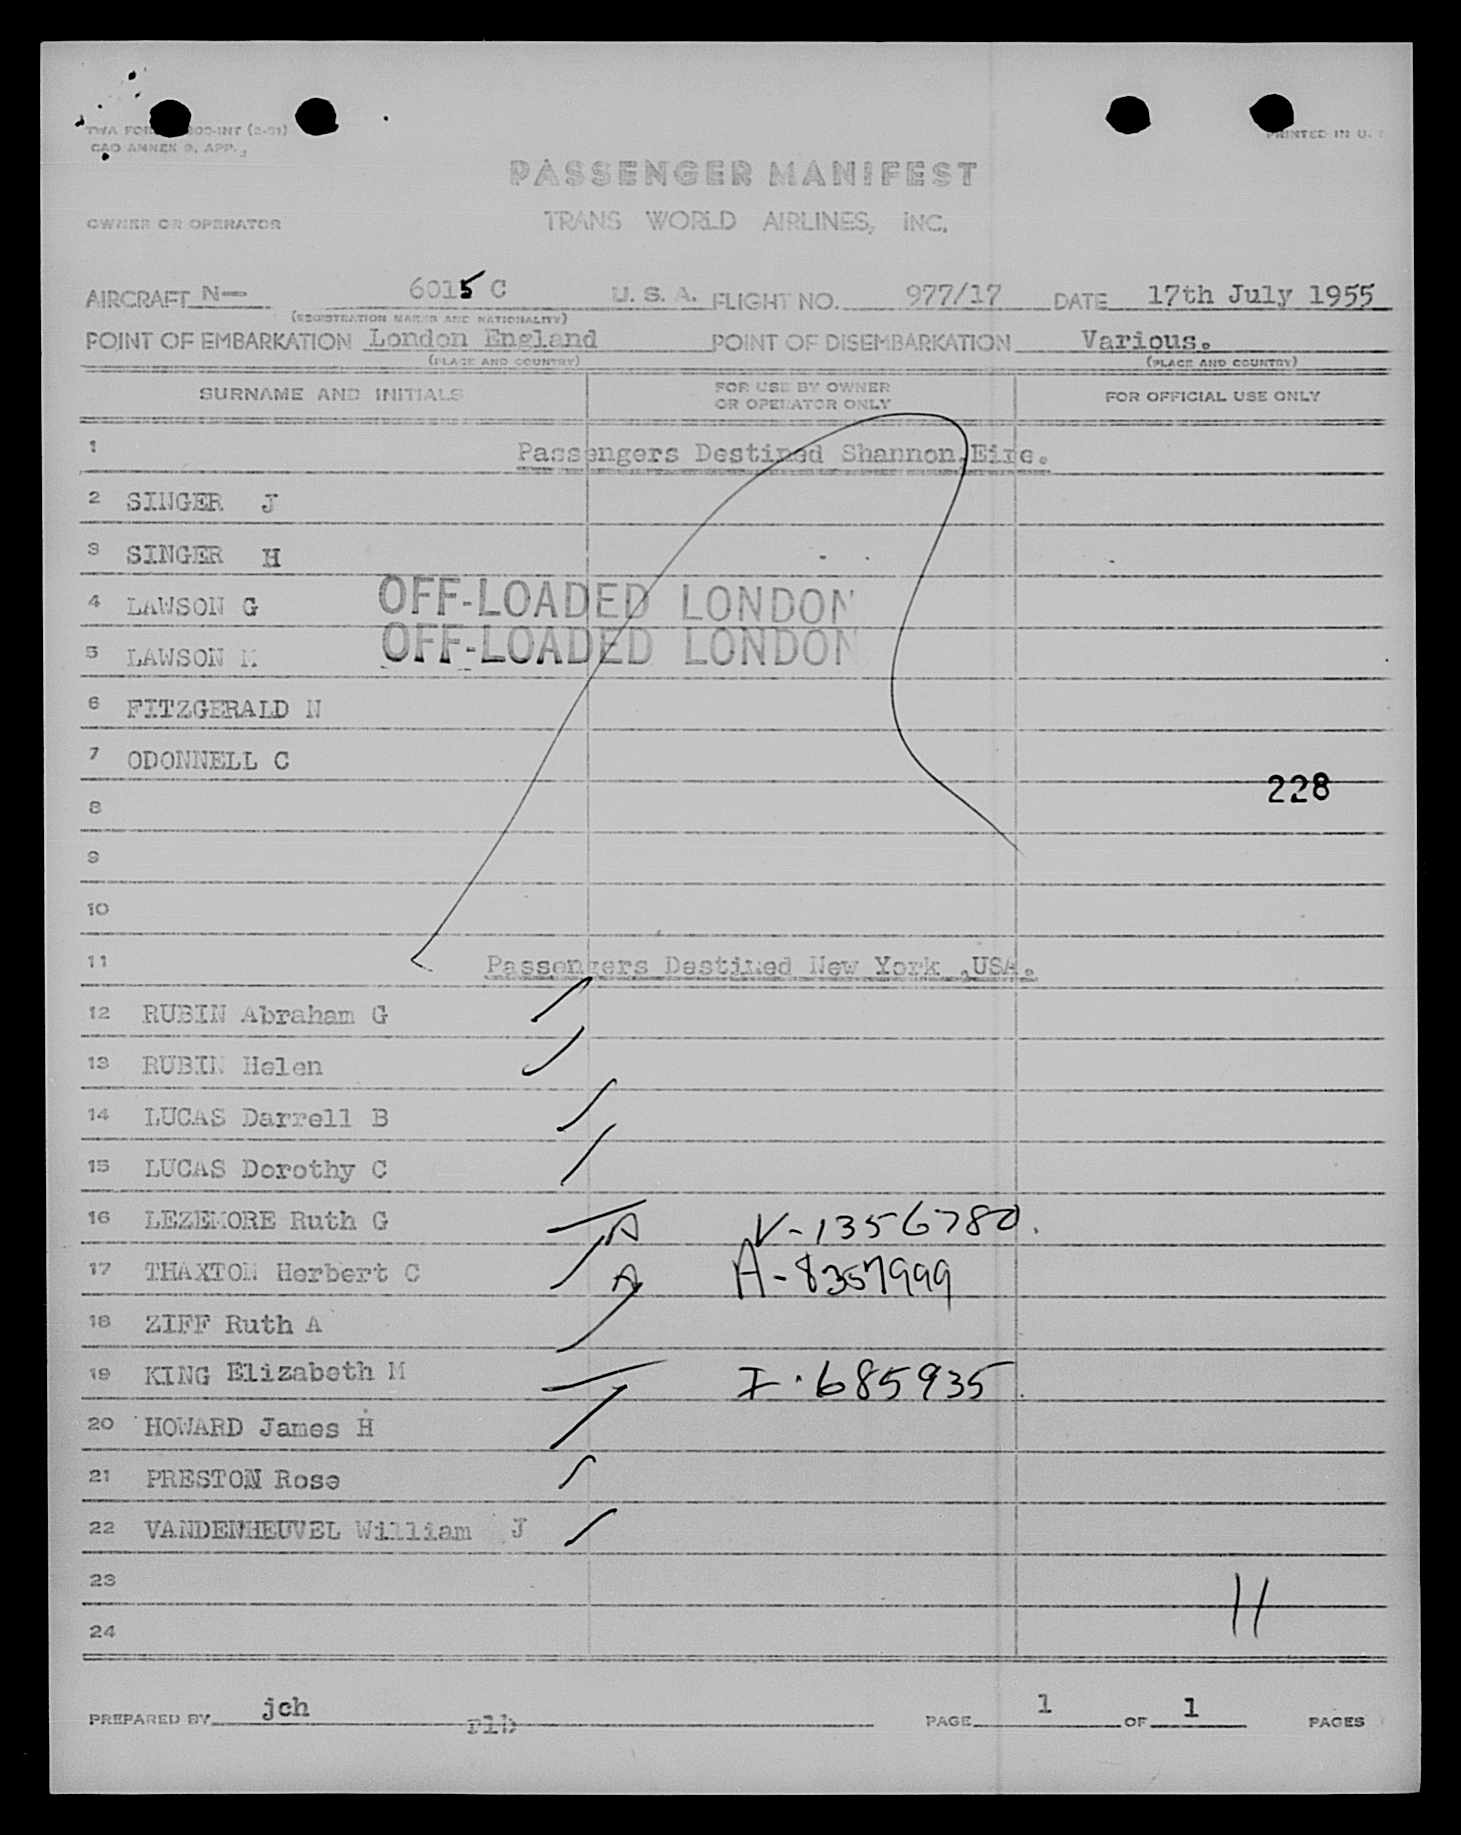 TWA FORM 800-INT (2-51)
CAO ANNEX 9, APP.
PRINTED IN U. S.
PASSENGER MANIFEST
OWNER OR OPERATOR TRANS WORLD AIRLINES, INC.
AIRCRAFT N— 6015 C U. S. A. FLIGHT NO. 977/17 DATE 17th July 1955
(REGISTRATION MARKS AND NATIONALITY)
POINT OF EMBARKATION London England POINT OF DISEMBARKATION Various.
(PLACE AND COUNTRY) (PLACE AND COUNTRY)
SURNAME AND INITIALS FOR USE BY OWNER OR OPERATOR ONLY FOR OFFICIAL USE ONLY
1 Passengers Destined Shannon,Eire.
2 SINGER J
3 SINGER H
4 LAWSON G OFF-LOADED LONDON
5 LAWSON M OFF-LOADED LONDON
6 FITZGERALD N
7 ODONNELL C
228
8
9
10
11 Passengers Destined New York ,USA.
12 RUBIN Abraham G
13 RUBIN Helen
14 LUCAS Darrell B
15 LUCAS Dorothy C
16 LEZEMORE Ruth G A V-1356780.
17 THAXTON Herbert C A A-8357999
18 ZIFF Ruth A
19 KING Elizabeth M I-685935
20 HOWARD James H
21 PRESTON Rose
22 VANDENHEUVEL William J
23
11
24
PREPARED BY jch PAGE 1 OF 1 PAGES